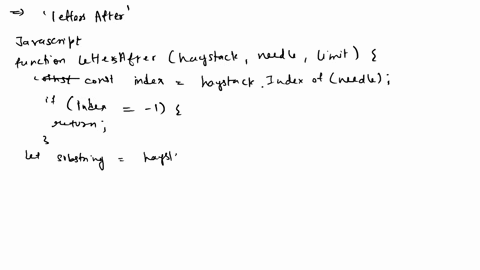 => 'letters After'
Javascript
function lettersAfter (haystack, needle, limit) {
const index = haystack.Index of (needle);
if (Index = -1) {
return;
}
let substring = hayst